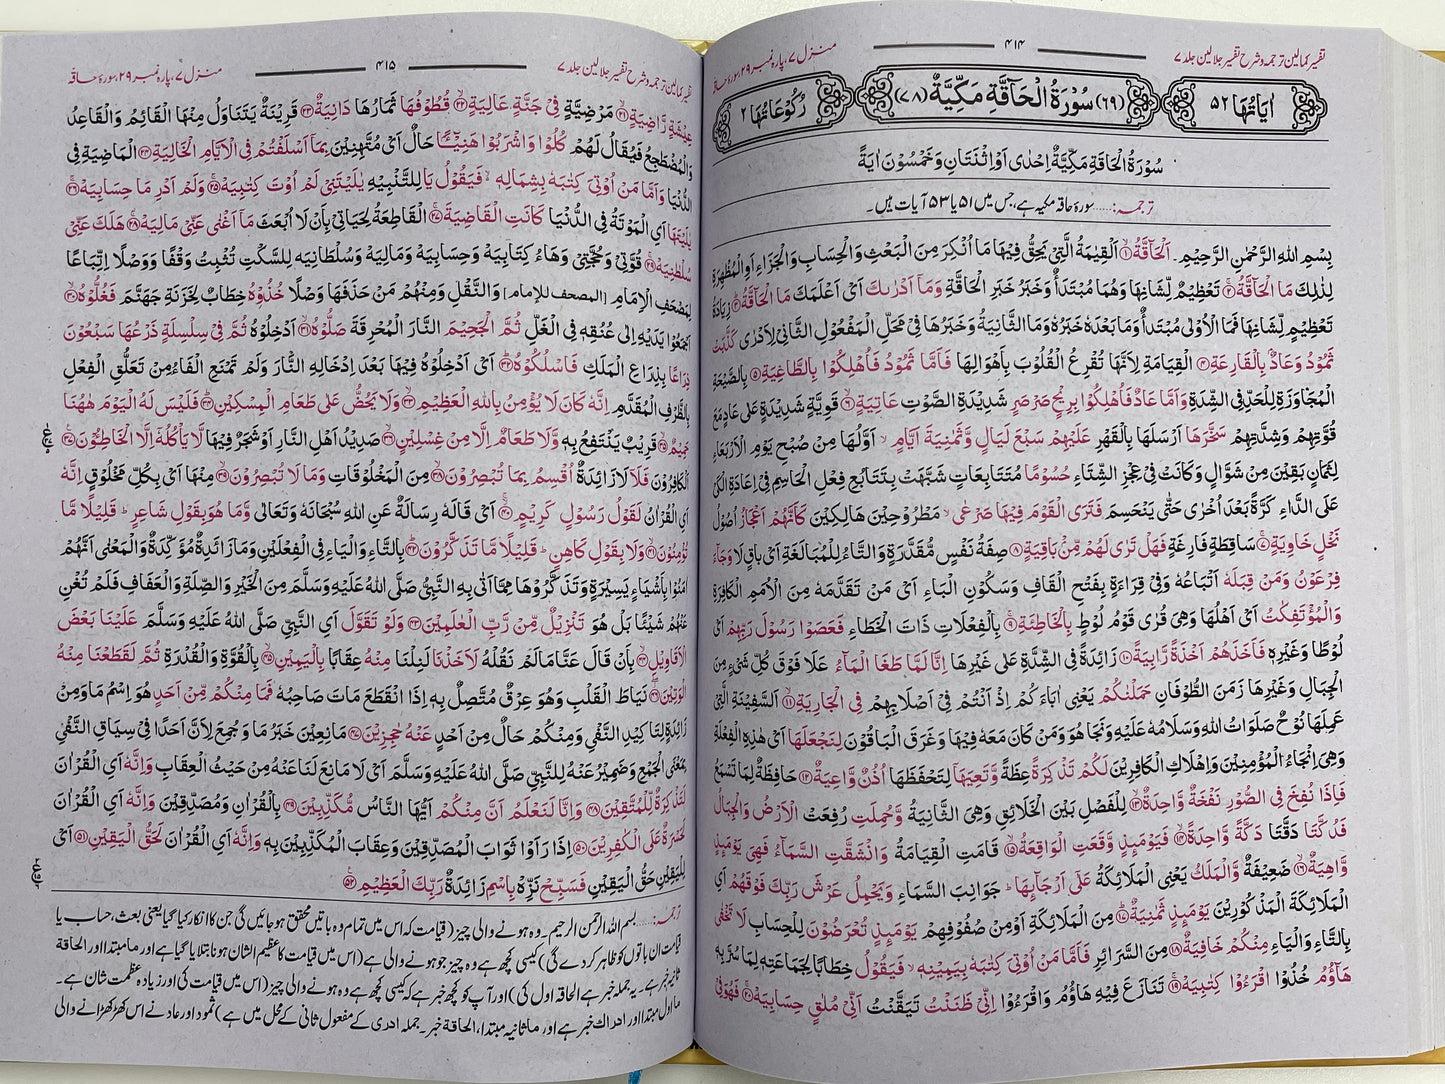 تفسیر کمالین ترجمہ و شرح تفسیر جلالین جلد ۷
۴۱۴
منزل ۷، پارہ نمبر ۲۹، سورۃ حاقہ
اٰیَاتُهَا ۵۲
(۶۹) سُوْرَةُ الْحَآقَّةِ مَکِّیَّةٌ (۷۸)
رُکُوْعَاتُهَا ۲
سُوْرَةُ الْحَاقَةِ مَکِّیَّةٌ اِحْدٰی اَوْ اِثْنَتَانِ وَخَمْسُوْنَ اٰیَةً
ترجمہ:..... سورۂ حاقہ مکیہ ہے، جس میں ۵۱ یا ۵۳ آیات ہیں۔
بِسْمِ اللهِ الرَّحْمٰنِ الرَّحِیْمِ۔ اَلْحَآقَّةُ ① اَلْقِیٰمَةُ الَّتِیْ یَحِقُّ فِیْهَا مَا اُنْکِرَ مِنَ الْبَعْثِ وَالْحِسَابِ وَالْجَزَاءِ اَوِ الْمُظْهِرَةُ
لِذٰلِكَ مَا الْحَآقَّةُ ② تَعْظِیْمٌ لِشَانِهَا وَهُمَا مُبْتَدَأٌ وَخَبَرٌ خَبَرُ الْحَاقَّةِ وَمَآ اَدْرٰىكَ اَیْ اَعْلَمَكَ مَا الْحَآقَّةُ ③ زِیَادَةُ
تَعْظِیْمٍ لِّشَانِهَا فَمَا الْاُوْلٰی مُبْتَدَأٌ وَمَا بَعْدَهٗ خَبَرُهٗ وَمَا الثَّانِیَةُ وَخَبَرُهَا فِیْ مَحَلِّ الْمَفْعُوْلِ الثَّانِیْ لِاَدْرٰی کَذَّبَتْ
ثَمُوْدُ وَعَادٌۢ بِالْقَارِعَةِ ④ الْقِیَامَةِ لِاَنَّهَا تُقْرِعُ الْقُلُوْبَ بِاَهْوَالِهَا فَاَمَّا ثَمُوْدُ فَاُهْلِکُوْا بِالطَّاغِیَةِ ⑤ بِالصَّیْحَةِ
الْمُجَاوَزَةِ لِلْحَدِّ فِی الشِّدَّةِ وَاَمَّا عَادٌ فَاُهْلِکُوْا بِرِیْحٍ صَرْصَرٍ شَدِیْدَةِ الصَّوْتِ عَاتِیَةٍ ⑥ قَوِیَّةٍ شَدِیْدَةٍ عَلٰی عَادٍ مَعَ
قُوَّتِهِمْ وَشِدَّتِهِمْ سَخَّرَهَا اَرْسَلَهَا بِالْقَهْرِ عَلَیْهِمْ سَبْعَ لَیَالٍ وَّثَمٰنِیَةَ اَیَّامٍ اَوَّلُهَا مِنْ صُبْحِ یَوْمِ الْاَرْبَعَاءِ
لِثَمَانٍ بَقِیْنَ مِنْ شَوَّالٍ وَکَانَتْ فِیْ عَجْزِ الشِّتَاءِ حُسُوْمًا مُتَتَابِعَاتٍ شُبِّهَتْ بِتَتَابُعِ فِعْلِ الْحَاسِمِ فِیْ اِعَادَةِ الْکَیِّ
عَلَی الدَّاءِ کَرَّةً بَعْدَ اُخْرٰی حَتّٰی یَنْحَسِمَ فَتَرَی الْقَوْمَ فِیْهَا صَرْعٰی مَطْرُوْحِیْنَ هَالِکِیْنَ کَاَنَّهُمْ اَعْجَازُ اُصُوْلُ
نَخْلٍ خَاوِیَةٍ ⑦ سَاقِطَةٍ فَارِغَةٍ فَهَلْ تَرٰی لَهُمْ مِّنْۢ بَاقِیَةٍ ⑧ صِفَةُ نَفْسٍ مُقَدَّرَةٍ وَالتَّاءُ لِلْمُبَالَغَةِ اَیْ بَاقٍ لَا وَجَآءَ
فِرْعَوْنُ وَمَنْ قِبَلَهٗ اَتْبَاعُهٗ وَفِیْ قِرَاءَةٍ بِفَتْحِ الْقَافِ وَسُکُوْنِ الْبَاءِ اَیْ مَنْ تَقَدَّمَهٗ مِنَ الْاُمَمِ الْکَافِرَةِ
وَالْمُؤْتَفِکٰتُ اَیْ اَهْلُهَا وَهِیَ قُرٰی قَوْمِ لُوْطٍ بِالْخَاطِئَةِ ⑨ بِالْفِعْلَاتِ ذَاتَ الْخَطَاءِ فَعَصَوْا رَسُوْلَ رَبِّهِمْ اَیْ
لُوْطًا وَغَیْرَهٖ فَاَخَذَهُمْ اَخْذَةً رَّابِیَةً ⑩ زَائِدَةً فِی الشِّدَّةِ عَلٰی غَیْرِهَا اِنَّا لَمَّا طَغَا الْمَآءُ عَلَا فَوْقَ کُلِّ شَیْءٍ مِنَ
الْجِبَالِ وَغَیْرِهَا زَمَنَ الطُّوْفَانِ حَمَلْنٰکُمْ یَعْنِیْ اٰبَاءَکُمْ اِذْ اَنْتُمْ فِیْ اَصْلَابِهِمْ فِی الْجَارِیَةِ ⑪ اَلسَّفِیْنَةِ الَّتِیْ
عَمِلَهَا نُوْحٌ صَلَوَاتُ اللهِ وَسَلَامُهٗ عَلَیْهِ وَنَجَا هُوَ وَمَنْ کَانَ مَعَهٗ فِیْهَا وَغَرِقَ الْبَاقُوْنَ لِنَجْعَلَهَا اَیْ هٰذِهِ الْفِعْلَةَ
وَهِیَ اِنْجَاءُ الْمُؤْمِنِیْنَ وَاِهْلَاكُ الْکَافِرِیْنَ لَکُمْ تَذْکِرَةً عِظَةً وَّتَعِیَهَآ لِتَحْفَظَهَا اُذُنٌ وَّاعِیَةٌ ⑫ حَافِظَةٌ لِمَا تَسْمَعُ
فَاِذَا نُفِخَ فِی الصُّوْرِ نَفْخَةٌ وَّاحِدَةٌ ⑬ لِلْفَصْلِ بَیْنَ الْخَلَائِقِ وَهِیَ الثَّانِیَةُ وَّحُمِلَتِ رُفِعَتْ الْاَرْضُ وَالْجِبَالُ
فَدُکَّتَا دَقَّتَا دَکَّةً وَّاحِدَةً ⑭ فَیَوْمَئِذٍ وَّقَعَتِ الْوَاقِعَةُ ⑮ قَامَتِ الْقِیَامَةُ وَانْشَقَّتِ السَّمَآءُ فَهِیَ یَوْمَئِذٍ
وَّاهِیَةٌ ⑯ ضَعِیْفَةٌ وَّالْمَلَكُ یَعْنِی الْمَلَائِکَةُ عَلٰٓی اَرْجَآئِهَا جَوَانِبِ السَّمَاءِ وَیَحْمِلُ عَرْشَ رَبِّكَ فَوْقَهُمْ اَیْ
الْمَلَائِکَةَ الْمَذْکُوْرِیْنَ یَوْمَئِذٍ ثَمٰنِیَةٌ ⑰ مِنَ الْمَلَائِکَةِ اَوْ مِنْ صُفُوْفِهِمْ یَوْمَئِذٍ تُعْرَضُوْنَ لِلْحِسَابِ لَا تَخْفٰی
بِالتَّاءِ وَالْیَاءِ مِنْکُمْ خَافِیَةٌ ⑱ مِنَ السَّرَائِرِ فَاَمَّا مَنْ اُوْتِیَ کِتٰبَهٗ بِیَمِیْنِهٖ فَیَقُوْلُ خِطَابًا لِجَمَاعَتِهٖ لِمَا سُرَّ بِهٖ
هَآؤُمُ خُذُوْا اقْرَءُوْا کِتٰبِیَهْ ⑲ تَنَازَعَ فِیْهِ هَاؤُمُ وَاقْرَءُوْا اِنِّیْ ظَنَنْتُ تَیَقَّنْتُ اَنِّیْ مُلٰقٍ حِسَابِیَهْ ⑳ فَهُوَ فِیْ
تفسیر کمالین ترجمہ و شرح تفسیر جلالین جلد ۷
۴۱۵
منزل ۷، پارہ نمبر ۲۹، سورۃ حاقہ
عِیْشَةٍ رَّاضِیَةٍ ㉑ مَرْضِیَّةٍ فِیْ جَنَّةٍ عَالِیَةٍ ㉒ قُطُوْفُهَا ثَمَارُهَا دَانِیَةٌ ㉓ قَرِیْنَةٌ یَتَنَاوَلُ مِنْهَا الْقَائِمُ وَالْقَاعِدُ
وَالْمُضْطَجِعُ فَیُقَالُ لَهُمْ کُلُوْا وَاشْرَبُوْا هَنِیْٓئًا حَالٌ اَیْ مُتَهَنِّیْنَ بِمَآ اَسْلَفْتُمْ فِی الْاَیَّامِ الْخَالِیَةِ ㉔ الْمَاضِیَةِ فِی
الدُّنْیَا وَاَمَّا مَنْ اُوْتِیَ کِتٰبَهٗ بِشِمَالِهٖ فَیَقُوْلُ یَا لِلتَّنْبِیْهِ یٰلَیْتَنِیْ لَمْ اُوْتَ کِتٰبِیَهْ ㉕ وَلَمْ اَدْرِ مَا حِسَابِیَهْ ㉖
یٰلَیْتَهَا اَیِ الْمَوْتَةَ فِی الدُّنْیَا کَانَتِ الْقَاضِیَةَ ㉗ الْقَاطِعَةُ لِحَیَاتِیْ بِاَنْ لَا اُبْعَثَ مَآ اَغْنٰی عَنِّیْ مَالِیَهْ ㉘ هَلَكَ عَنِّیْ
سُلْطٰنِیَهْ ㉙ قُوَّتِیْ وَحُجَّتِیْ وَهَاءُ کِتَابِیَهْ وَحِسَابِیَهْ وَمَالِیَهْ وَسُلْطَانِیَهْ لِلسَّکْتِ تُثْبِتُ وَقْفًا وَوَصْلًا اِتِّبَاعًا
لِمِصْحَفِ الْاِمَامِ [المصحف للامام] وَالنَّقْلِ وَمِنْهُمْ مَنْ حَذَفَهَا وَصْلًا خُذُوْهُ خِطَابٌ لِخَزَنَةِ جَهَنَّمَ فَغُلُّوْهُ ㉚
اِجْمَعُوْا یَدَیْهِ اِلٰی عُنُقِهٖ فِی الْغَلِّ ثُمَّ الْجَحِیْمَ النَّارَ الْمُحْرِقَةَ صَلُّوْهُ ㉛ اَدْخِلُوْهُ ثُمَّ فِیْ سِلْسِلَةٍ ذَرْعُهَا سَبْعُوْنَ
ذِرَاعًا بِذِرَاعِ الْمَلَكِ فَاسْلُکُوْهُ ㉜ اَیْ اَدْخِلُوْهُ فِیْهَا بَعْدَ اِدْخَالِهِ النَّارَ وَلَمْ تَمْنَعِ الْفَاءُ مِنْ تَعَلُّقِ الْفِعْلِ
بِالظَّرْفِ الْمُقَدَّمِ اِنَّهٗ کَانَ لَا یُؤْمِنُ بِاللهِ الْعَظِیْمِ ㉝ وَلَا یَحُضُّ عَلٰی طَعَامِ الْمِسْکِیْنِ ㉞ فَلَیْسَ لَهُ الْیَوْمَ هٰهُنَا
حَمِیْمٌ ㉟ قَرِیْبٌ یَنْتَفِعُ بِهٖ وَّلَا طَعَامٌ اِلَّا مِنْ غِسْلِیْنٍ ㊱ صَدِیْدُ اَهْلِ النَّارِ اَوْ شَجَرٌ فِیْهَا لَّا یَاْکُلُهٗٓ اِلَّا الْخَاطِئُوْنَ ㊲
الْکَافِرُوْنَ فَلَآ لَا زَائِدَةٌ اُقْسِمُ بِمَا تُبْصِرُوْنَ ㊳ مِنَ الْمَخْلُوْقَاتِ وَمَا لَا تُبْصِرُوْنَ ㊴ مِنْهَا اَیْ بِکُلِّ مَخْلُوْقٍ اِنَّهٗ
اَیِ الْقُرْاٰنُ لَقَوْلُ رَسُوْلٍ کَرِیْمٍ ㊵ اَیْ قَالَهٗ رِسَالَةٌ عَنِ اللهِ سُبْحَانَهٗ وَتَعَالٰی وَّمَا هُوَ بِقَوْلِ شَاعِرٍ قَلِیْلًا مَّا
تُؤْمِنُوْنَ ㊶ وَلَا بِقَوْلِ کَاهِنٍ قَلِیْلًا مَّا تَذَکَّرُوْنَ ㊷ بِالتَّاءِ وَالْیَاءِ فِی الْفِعْلَیْنِ وَمَا زَائِدَةٌ مُؤَکِّدَةٌ وَالْمَعْنٰی اَنَّهُمْ
اٰمَنُوْا بِاَشْیَاءَ یَسِیْرَةٍ وَتَذَکَّرُوْهَا مِمَّا اَتٰی بِهِ النَّبِیُّ صَلَّی اللهُ عَلَیْهِ وَسَلَّمَ مِنَ الْخَیْرِ وَالصِّلَةِ وَالْعَفَافِ فَلَمْ تُغْنِ
عَنْهُمْ شَیْئًا بَلْ هُوَ تَنْزِیْلٌ مِّنْ رَّبِّ الْعٰلَمِیْنَ ㊸ وَلَوْ تَقَوَّلَ اَیِ النَّبِیُّ صَلَّی اللهُ عَلَیْهِ وَسَلَّمَ عَلَیْنَا بَعْضَ
الْاَقَاوِیْلِ ㊹ بِاَنْ قَالَ عَنَّا مَا لَمْ نَقُلْهُ لَاَخَذْنَا لَنِلْنَا مِنْهُ عِقَابًا بِالْیَمِیْنِ ㊺ بِالْقُوَّةِ وَالْقُدْرَةِ ثُمَّ لَقَطَعْنَا مِنْهُ
الْوَتِیْنَ ㊻ نَیَاطَ الْقَلْبِ وَهُوَ عِرْقٌ مُتَّصِلٌ بِهٖ اِذَا انْقَطَعَ مَاتَ صَاحِبُهٗ فَمَا مِنْکُمْ مِّنْ اَحَدٍ هُوَ اِسْمُ مَا وَمِنْ
زَائِدَةٌ لِتَاکِیْدِ النَّفْیِ وَمِنْکُمْ حَالٌ مِنْ اَحَدٍ عَنْهُ حٰجِزِیْنَ ㊼ مَانِعِیْنَ خَبَرُ مَا وَجُمِعَ لِاَنَّ اَحَدًا فِیْ سِیَاقِ النَّفْیِ
بِمَعْنَی الْجَمْعِ وَضَمِیْرُ عَنْهُ لِلنَّبِیِّ صَلَّی اللهُ عَلَیْهِ وَسَلَّمَ اَیْ لَا مَانِعَ لَنَا عَنْهُ مِنْ حَیْثُ الْعِقَابِ وَاِنَّهٗ اَیِ الْقُرْاٰنَ
لَتَذْکِرَةٌ لِّلْمُتَّقِیْنَ ㊽ وَاِنَّا لَنَعْلَمُ اَنَّ مِنْکُمْ اَیُّهَا النَّاسُ مُّکَذِّبِیْنَ ㊾ بِالْقُرْاٰنِ وَمُصَدِّقِیْنَ وَاِنَّهٗ اَیِ الْقُرْاٰنَ
لَحَسْرَةٌ عَلَی الْکٰفِرِیْنَ ㊿ اِذَا رَاَوْا ثَوَابَ الْمُصَدِّقِیْنَ وَعِقَابَ الْمُکَذِّبِیْنَ بِهٖ وَاِنَّهٗ اَیِ الْقُرْاٰنَ لَحَقُّ الْیَقِیْنِ ۵۱ اَیْ
لِلْیَقِیْنِ حَقُّ الْیَقِیْنِ فَسَبِّحْ نَزِّهْ بِاسْمِ زَائِدَةٌ رَبِّكَ الْعَظِیْمِ ۵۲
ترجمہ:..... بسم اللہ الرحمن الرحیم۔ وہ ہونے والی چیز (قیامت کہ اس میں تمام وہ باتیں محقق ہو جائیں گی جن کا انکار کیا گیا یعنی بعث، حساب یا
قیامت ان باتوں کو ظاہر کر دے گی) کیسی کچھ ہے وہ چیز جو ہونے والی ہے (اس میں قیامت کا عظیم الشان ہونا بتلایا گیا ہے اور ما مبتدا اور الحاقۃ
خبر ہے۔ یہ جملہ خبر ہے الحاقۃ اول کی) اور آپ کو کچھ خبر ہے کہ کیسی کچھ ہے وہ ہونے والی چیز (اس میں قیامت کی اور زیادہ عظمت شان ہے۔
ما اول مبتدا اور ادراک خبر ہے اور ما ثانیہ مبتدا، الحاقۃ خبر۔ جملہ ادری کے مفعول ثانی کے محل میں ہے) ثمود اور عاد نے اس کھڑکھڑانے والی